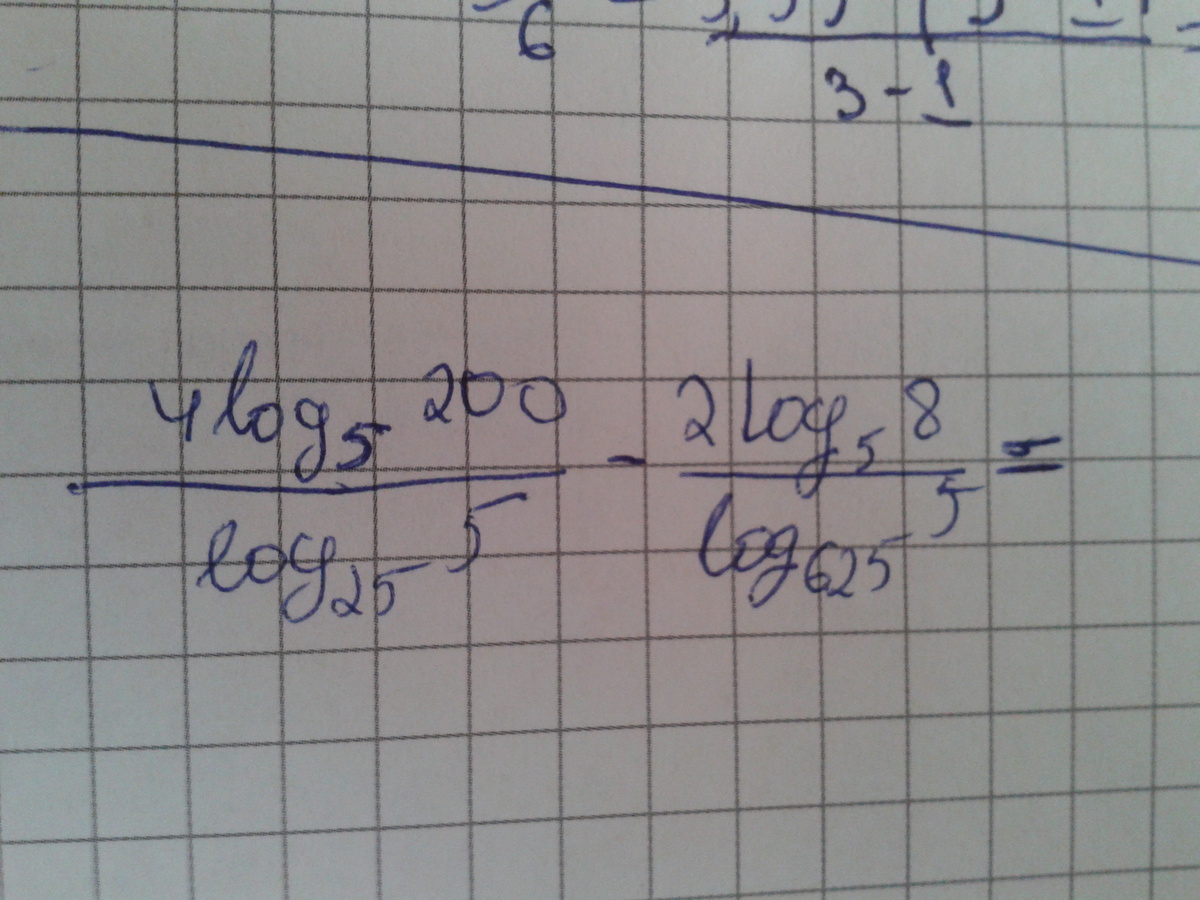 6
3-1
4 log₅ 200 / log₂₅ 5 - 2 log₅ 8 / log₆₂₅ 5 =